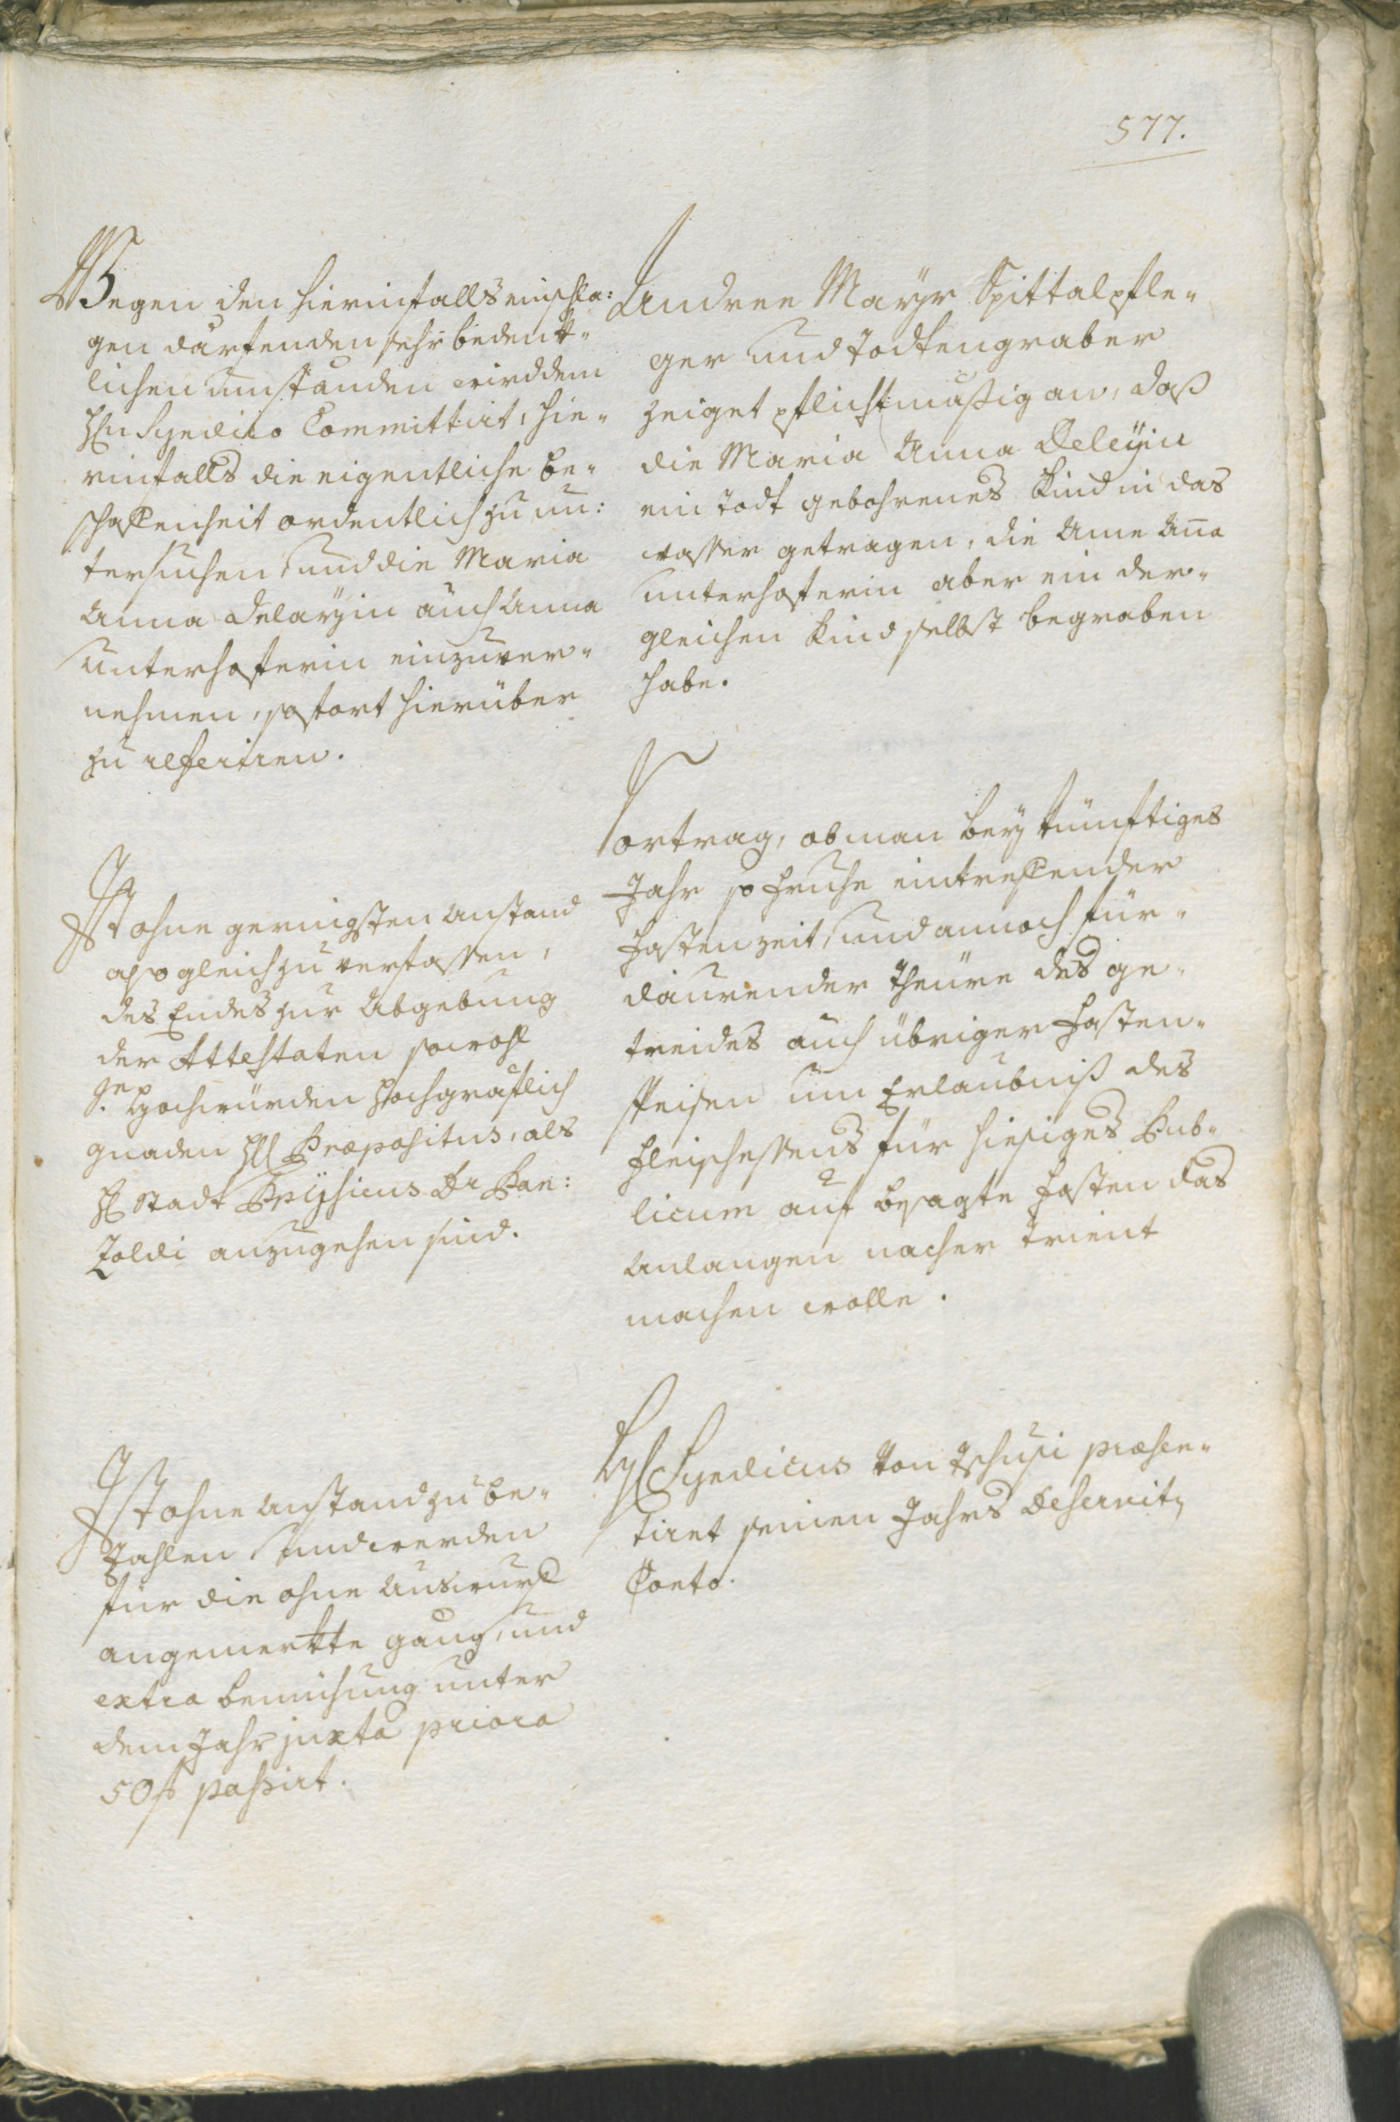 577.
Wegen den hierinfalls einschla:
gen därfenden sehr bedenk-
lichen umständen wird dem
H(errn) Syndico Committirt, hie-
rinfalls die eigentliche be-
schaffenheit ordentlich zu un:
tersuchen, und die Maria
Anna Delayin auch Anna
Unterhoferin einzuver-
nehmen, sofort hierüber
zu referiren.
Ist ohne geringsten Anstand
also gleich zu verfassen,
des Endes zur Abgebung
der Attestaten sowohl
Sr. Hochwürden Hochgräflich
gnaden H Præpositus, als
H Stadt Phÿsicus Dr Pan:
zoldi anzugehen sind.
Ist ohne Anstand zu be-
zahlen und werden
für die ohne Auswurf
angemerkte gäng, und
extra bemühung unter
dem Jahr juxta priora
50 f passirt.
Andree Mayr Spittalpfle-
ger und Todtengraber
zeiget pflichtmäßig an, daß
die Maria Anna Deleÿin
ein todt gebohrenes kind in das
wasser getragen, die Ana Ana
unterhoferin aber ein der-
gleichen kind selbst begraben
habe.
Vortrag, ob man bey künftiges
Jahr so fruhe eintreffender
fastenzeit, und annoch für-
daurender theure des ge-
treides auch übriger fasten-
speisen um Erlaubniß des
fleischessens für hiesiges Pub-
licum auf besagte fasten das
Anlangen nacher Trient
machen wolle.
H Syndicus von Tschusi præsen-
tiret seinen Jahrs Deservit
Conto.